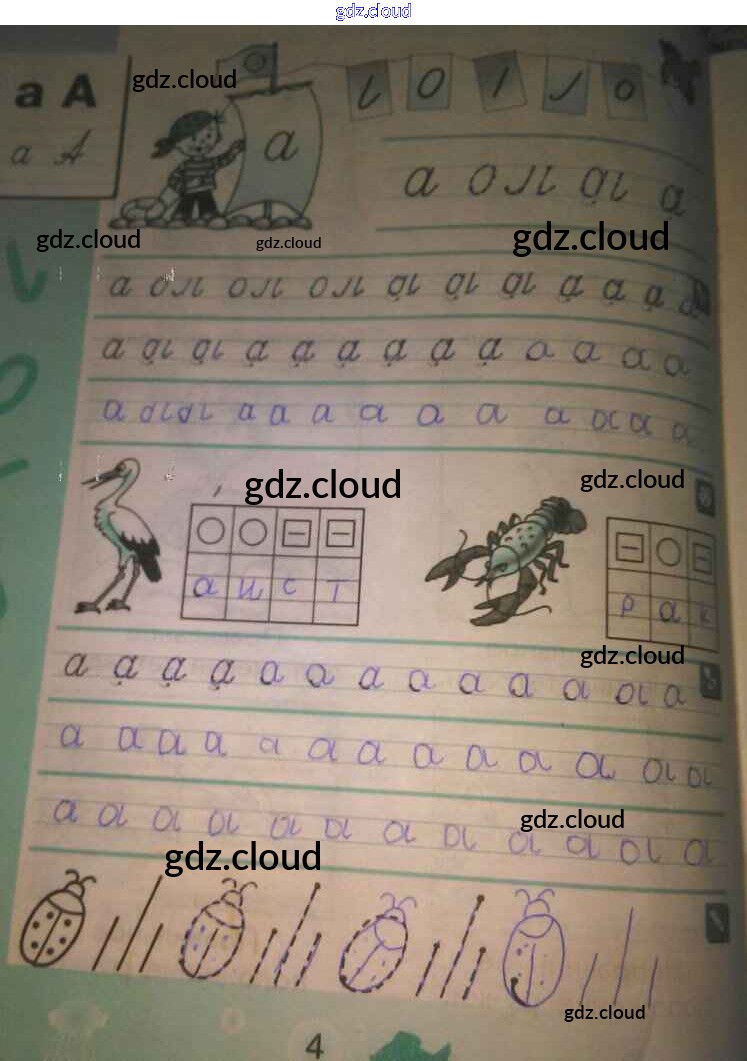 gdz.cloud
а А
gdz.cloud
а А
а
а
gdz.cloud
gdz.cloud
gdz.cloud
а а а а а
а а а а а а а а а а а а а
а а а а а а а а а а а а а
gdz.cloud
gdz.cloud
а и с т
р а к
gdz.cloud
а а а а а а а а а а а а а
а а а а а а а а а а а а а
gdz.cloud
а а а а а а а а а а а а
gdz.cloud
gdz.cloud
4